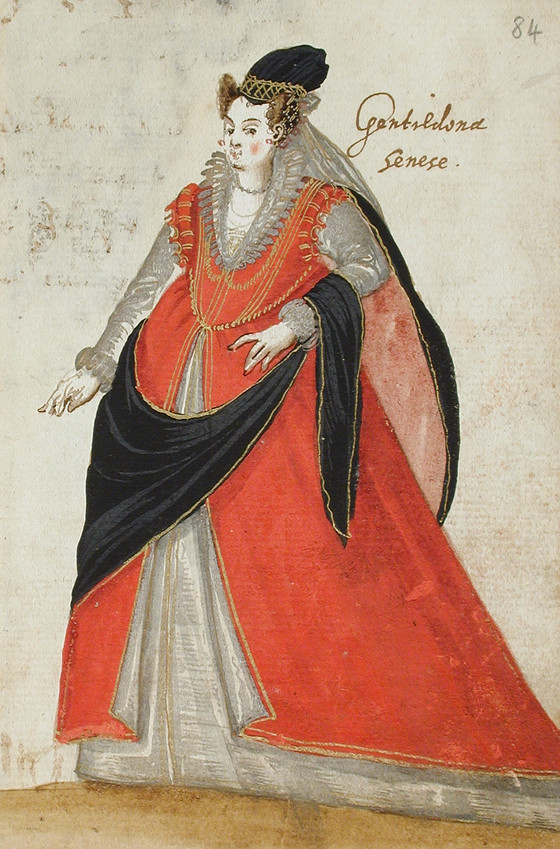 84
Gentildona
Senese.